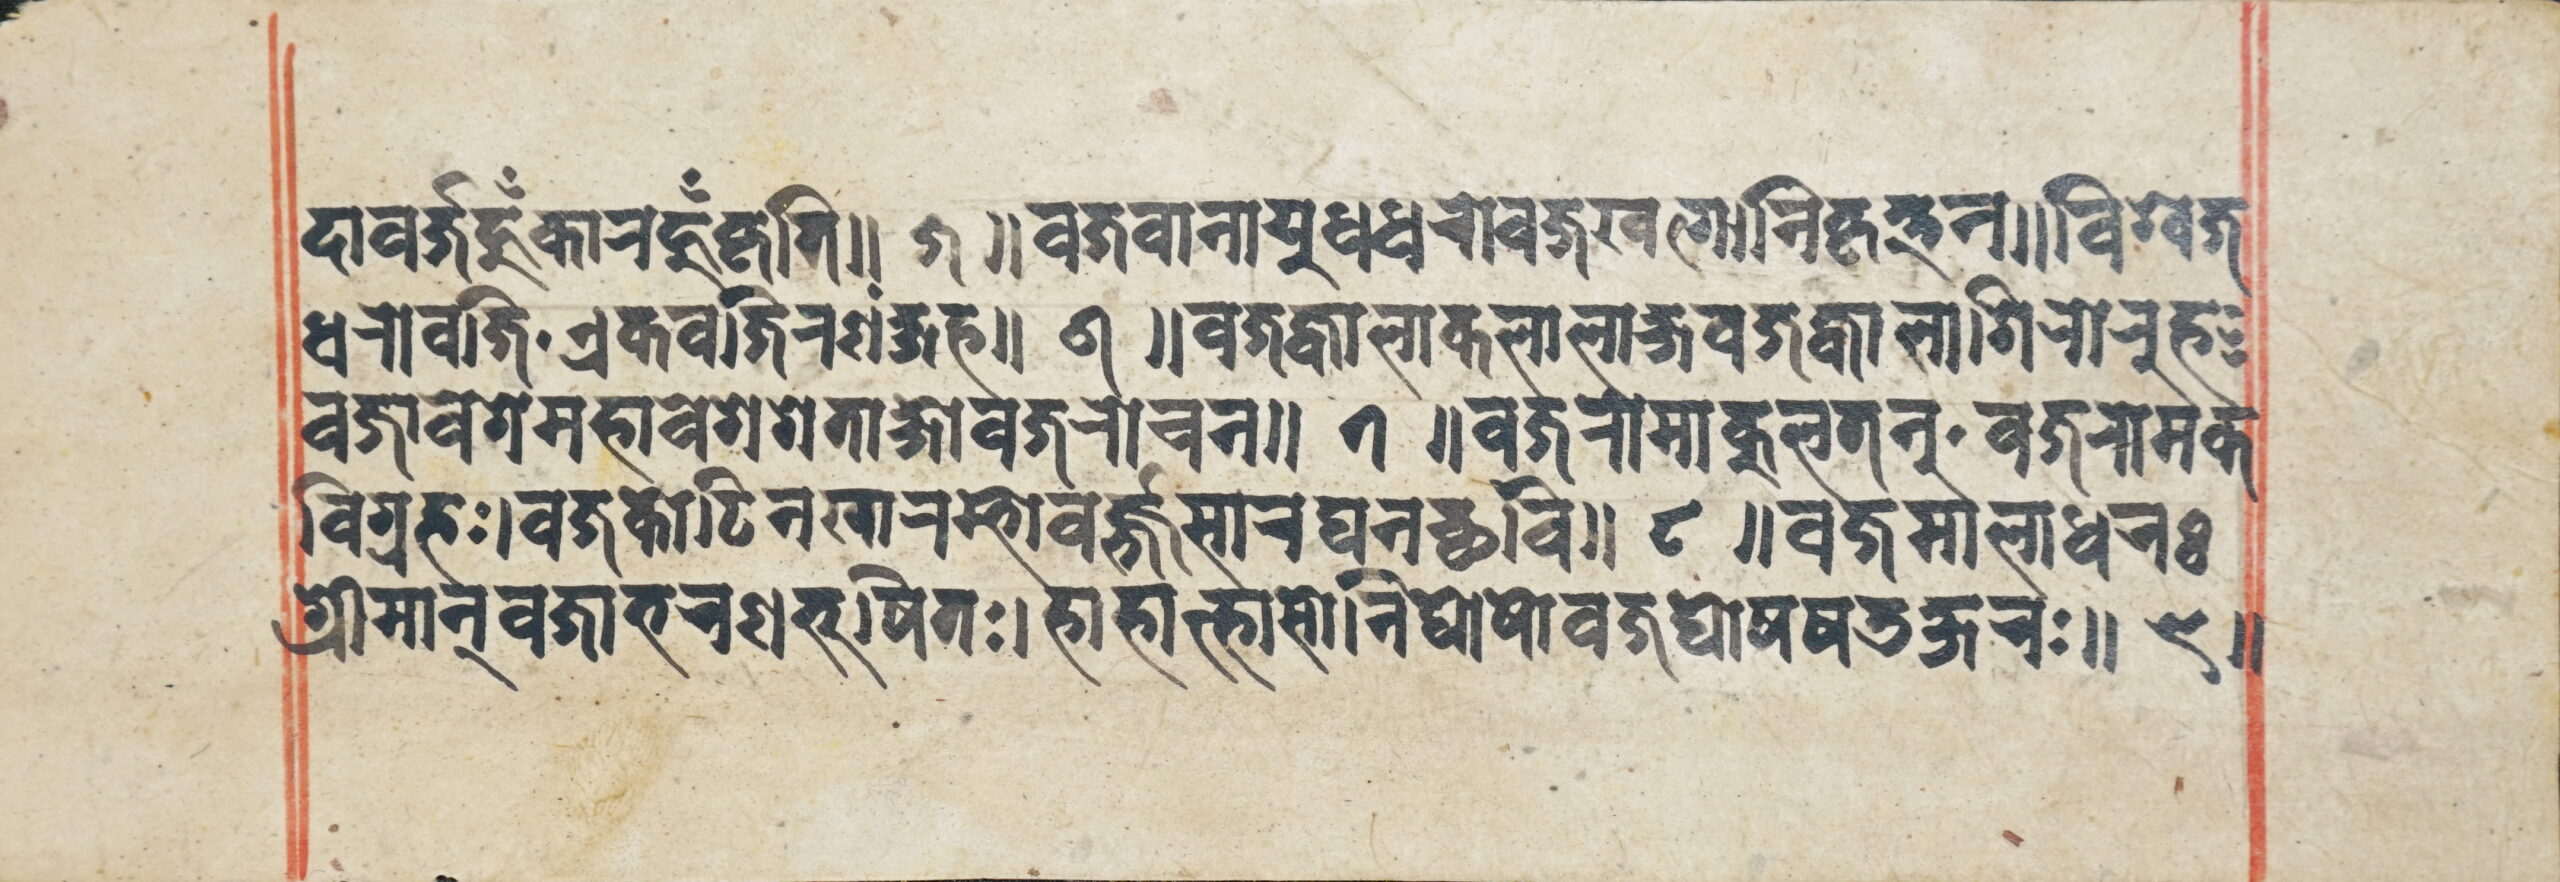 दावर्जहुँकारहुँकृति॥ ५ ॥वज्रवानायुधधरोवज्रखल्गोनिकृन्तन॥विश्वेज्र
धरोवज्रि·एकवज्रिरणंज्जह॥ ६ ॥वज्रज्वालाकलालाज्ञवज्रज्वालाशिरोरुहः
वज्रावेशेमहावेशशताज्ञोवज्ररोचन॥ ७ ॥वज्ररोमाकुलतनु·वज्ररोमैक
विग्रहः।वज्रकोटिनखारम्भोवर्ज्रसारघनच्छवि॥ ८ ॥वज्रमालाधरः
श्रीमान्वज्राभरणभूषितः।हाहात्हासोनिर्घोषोवज्रघोषषडज्ञरः॥ ९॥